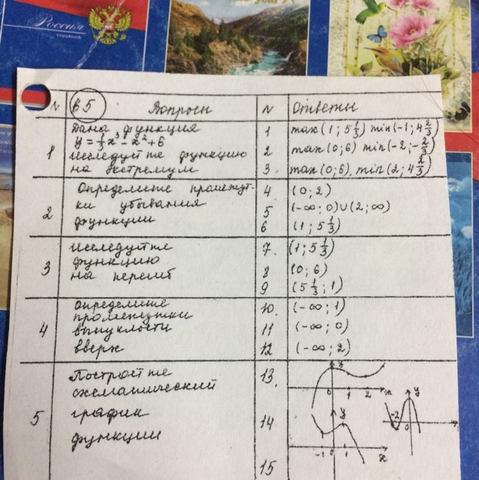 Россия
N в 5 Вопросы N Ответы
1 Дана функция
y = 1/3 x³ - x² + 6
Исследуйте функцию
на экстремум
1 max (1; 5 1/3) min (-1; 4 2/3)
2 max (0; 6) min (-2; -2/3)
3. max (0; 6), min (2; 4 2/3)
2 Определите промежут-
ки убывания
функции
4 (0; 2)
5 (-∞; 0) ∪ (2; ∞)
6 (1; 5 1/3)
3 Исследуйте
функцию
на перегиб
7. (1; 5 1/3)
8 (0; 6)
9 (5 1/3; 1)
4 Определите
промежутки
выпуклости
вверх
10. (-∞; 1)
11 (-∞; 0)
12 (-∞; 2)
5 Постройте
схематический
график
функции
13.
0 1 2 x
y
-2 0
14
y
-1 0 1 x
15